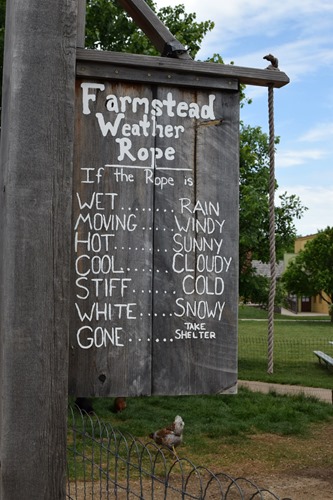 Farmstead
Weather
Rope
If the Rope is
WET........RAIN
MOVING.....WINDY
HOT........SUNNY
COOL.......CLOUDY
STIFF.......COLD
WHITE.....SNOWY
GONE.......TAKE SHELTER